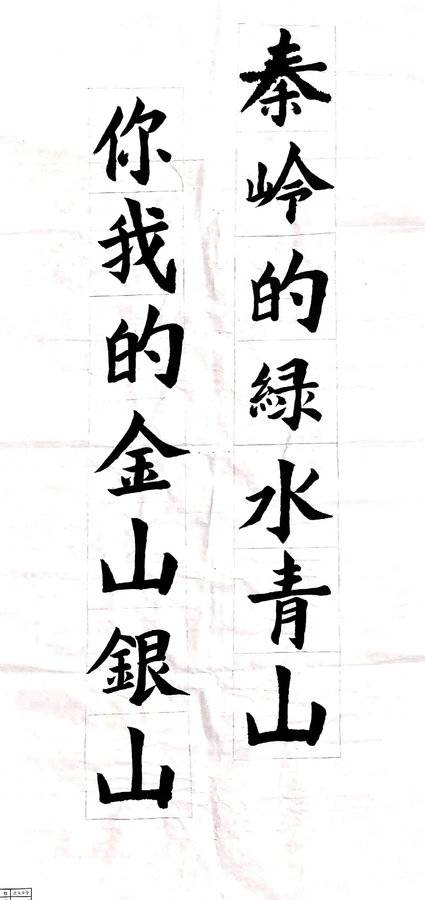 秦岭的緑水青山
你我的金山銀山